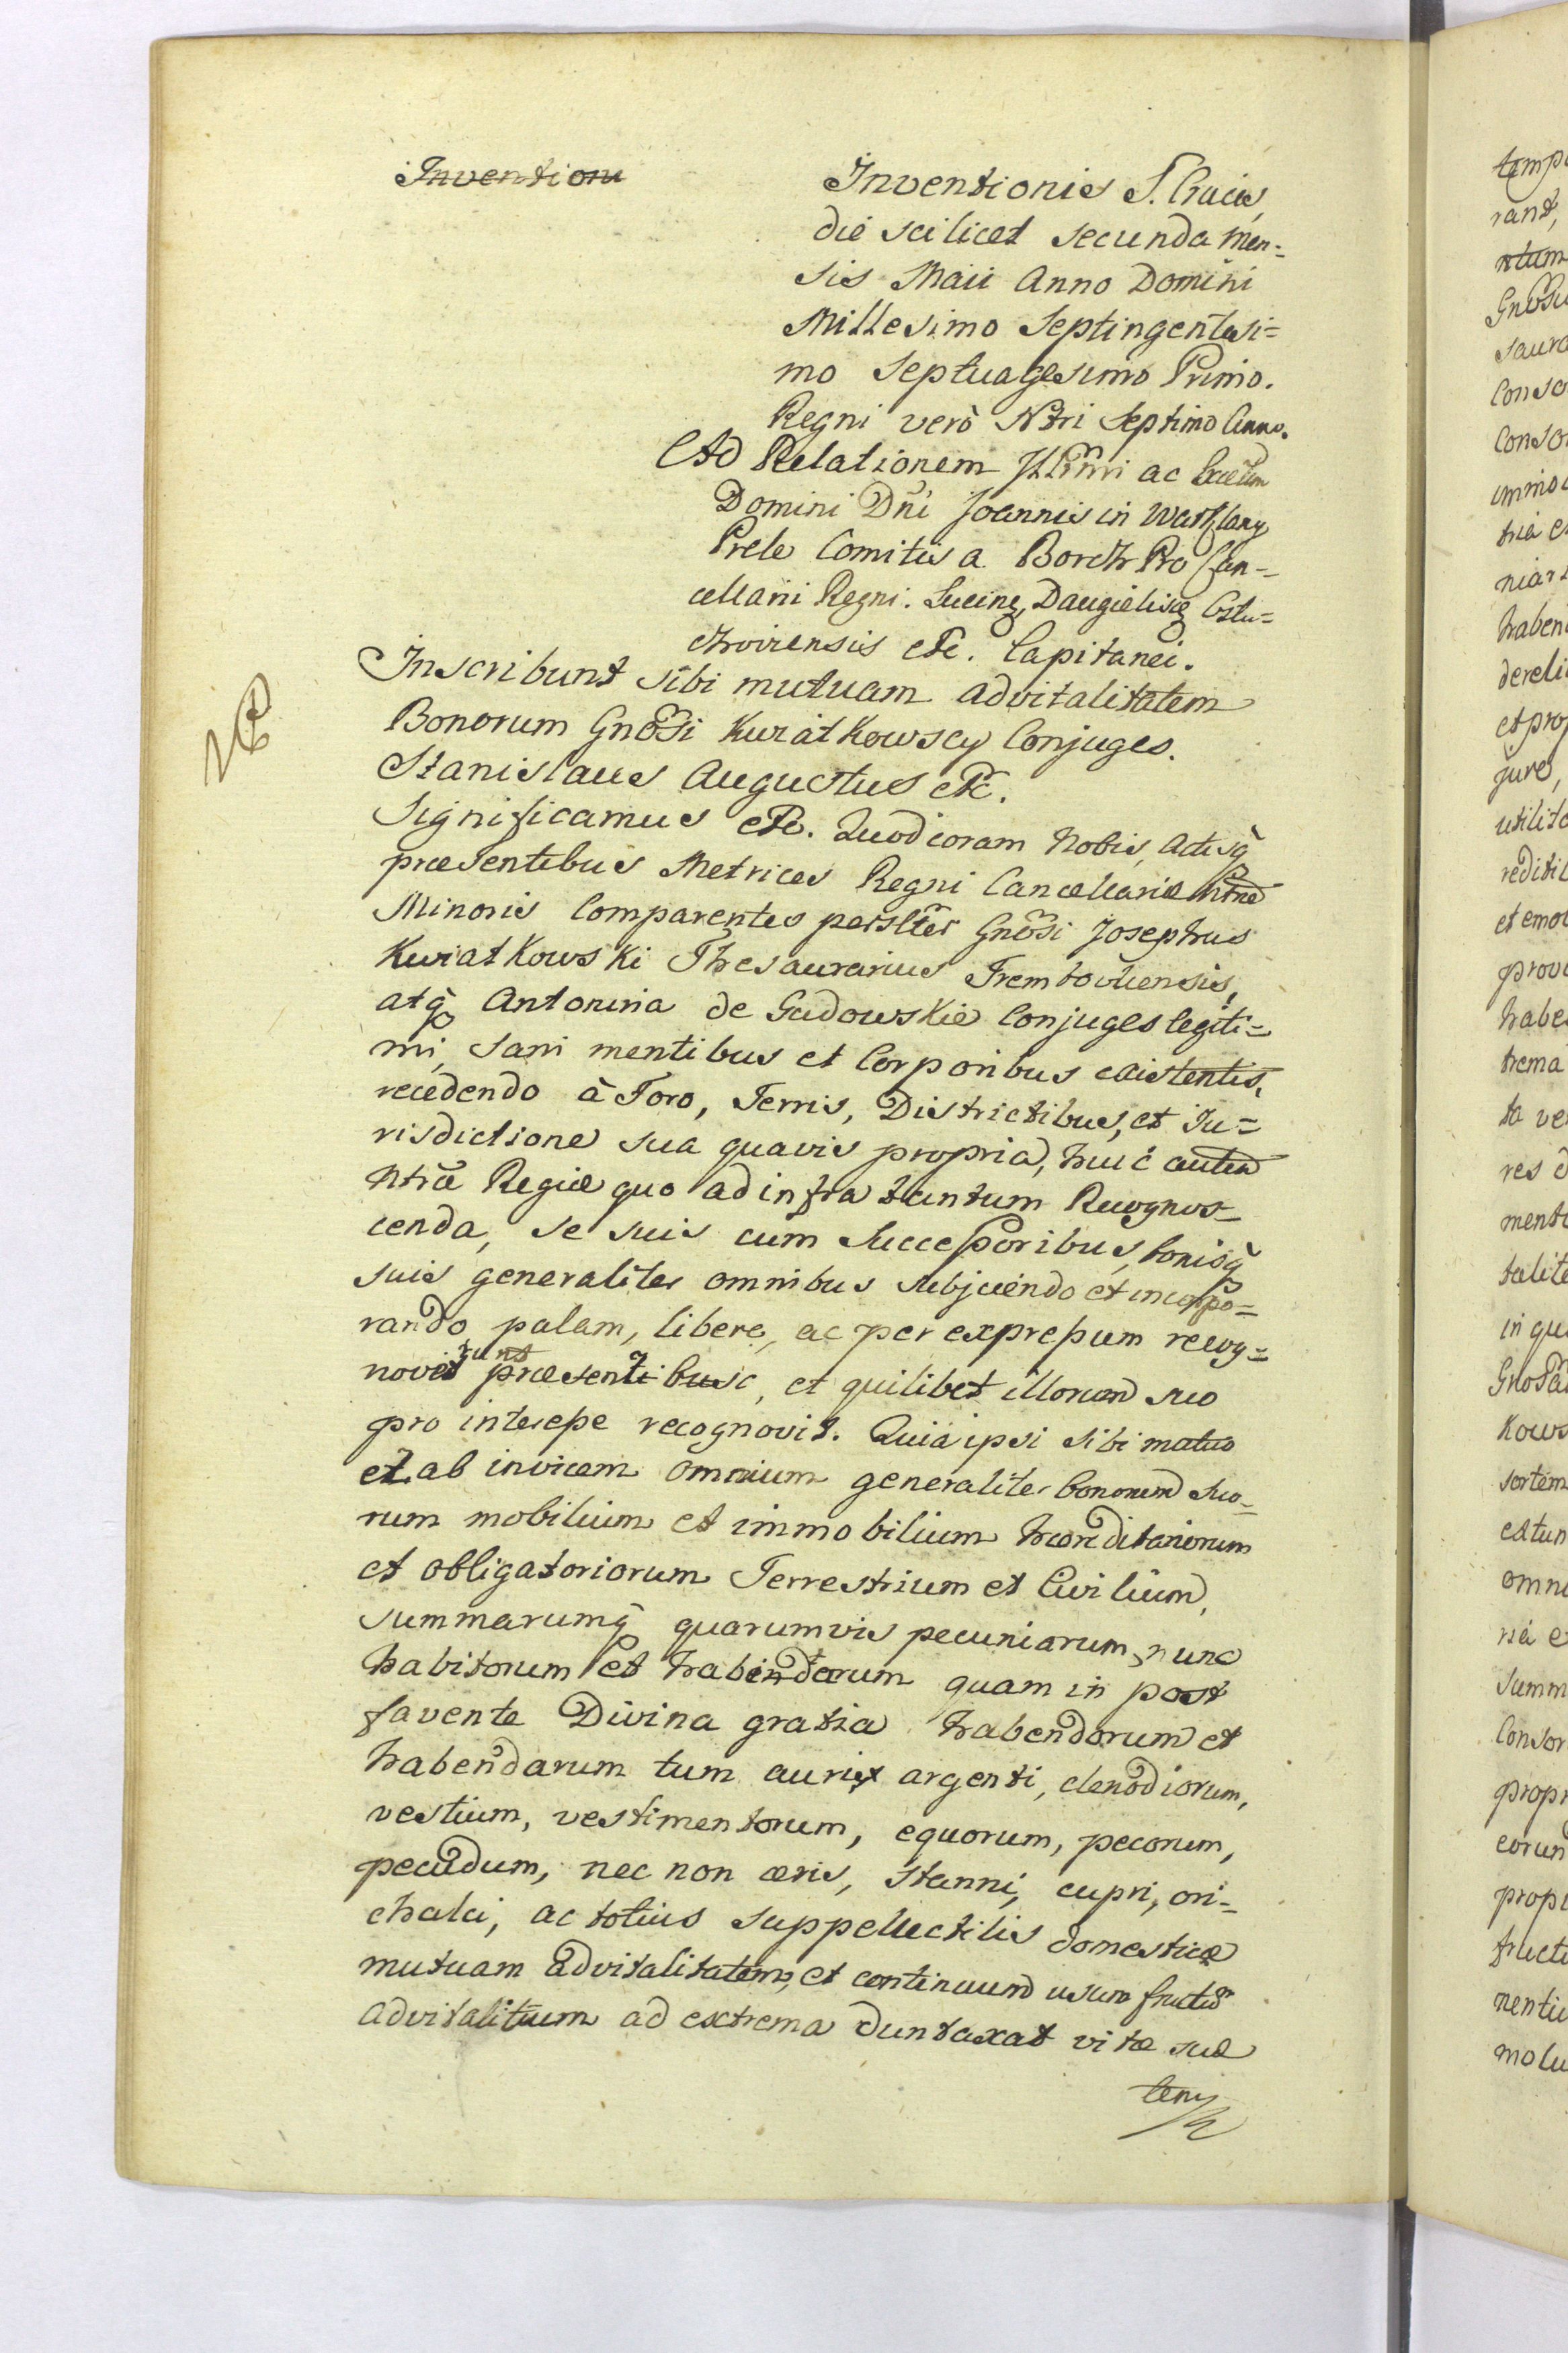 Invention
Inventionis S. Crucis,
die scilicet secunda Men=
sis Maii Anno Domini
Millesimo Septingentesi=
mo Septuagesimo Primo.
Regni verò Ntri Septimo Anno.
Ad Relationem Illmi ac Excellmi
Domini Dni Joannis in Wartzlany
Prele Comitis a Borch Pro Can=
cellarii Regni. Lucinę, Daugieliscę Ostu=
chovirensis etc. Capitanei.
Inscribunt sibi mutuam advitalitatem
Bonorum Gnosi Kwiatkowscy Conjuges.
Stanislaus Augustus etc.
Significamus etc. Quod coram Nobis, Actisq̀
præsentibus Metrices Regni Cancellariæ Ntræ
Minoris Comparentes persltèr Gnosi Josephus
Kwiatkowski Thesaurarius Trembovliensis,
atq̀ Antonina de Gadowskie Conjuges legiti=
mi, sani mentibus et Corporibus existentes,
recedendo à Foro, Terris, Districtibus, et Ju=
risdictione sua quavis propria, huic autem
Ntræ Regiæ quo ad infra tantum Recognos=
cenda, se suis cum Successoribus, bonisq̀
suis generaliter omnibus subjiciendo et incorpo=
rando, palam, libere, ac per expressum recog=
noverunt præsentibusc, et quilibet illorum suo
pro interesse recognovit. Quia ipsi sibi mutuo
et ab invicem omnium generaliter bonorum suo=
rum mobilium et immobilium hæreditariorum
et obligatoriorum Terrestrium et Civilium,
summarumq̀ quarumvis pecuniarum, nunc
habitorum et habitarum quam in post
favente Divina gratia habendorum et
habendarum tum auri et argenti, clenodiorum,
vestium, vestimentorum, equorum, pecorum,
pecudum, nec non æris, stanni, cupri, ori=
chalci, ac totius suppellectilis domesticæ
mutuam advitalitatem, et continuum usum fructum
advitalitium ad extrema duntaxat vitæ suæ
tem